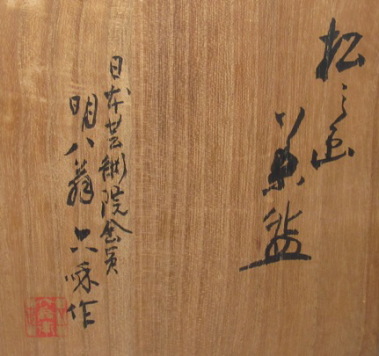 松之画
日本芸術院会員
明八翁 六和作